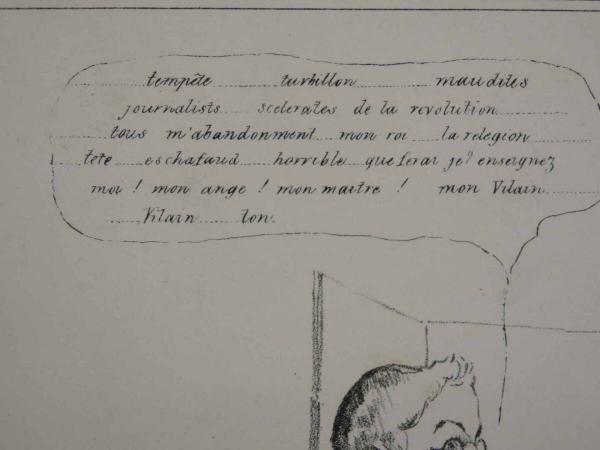 tempête ...... turbillon ......... maudites
journalists .... scelerates de la revolution..........
..... tous m'abandonment .. mon roi ... la relegion
tete .... eschafaud .... horrible que ferai je? enseignez
moi ! mon ange ! mon maitre ! mon Vilain ........
..... Vilain ..... ton.